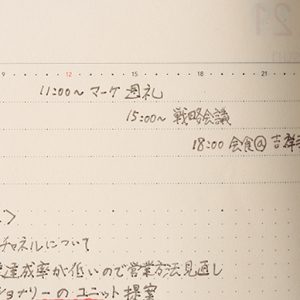 21
9 12 15 18 21
11:00～ マーケ 週礼
15:00～ 戦略会議
18:00 会食@吉祥
チャネルについて
達成率が低いので営業方法見直し
ショナリーのユニット提案